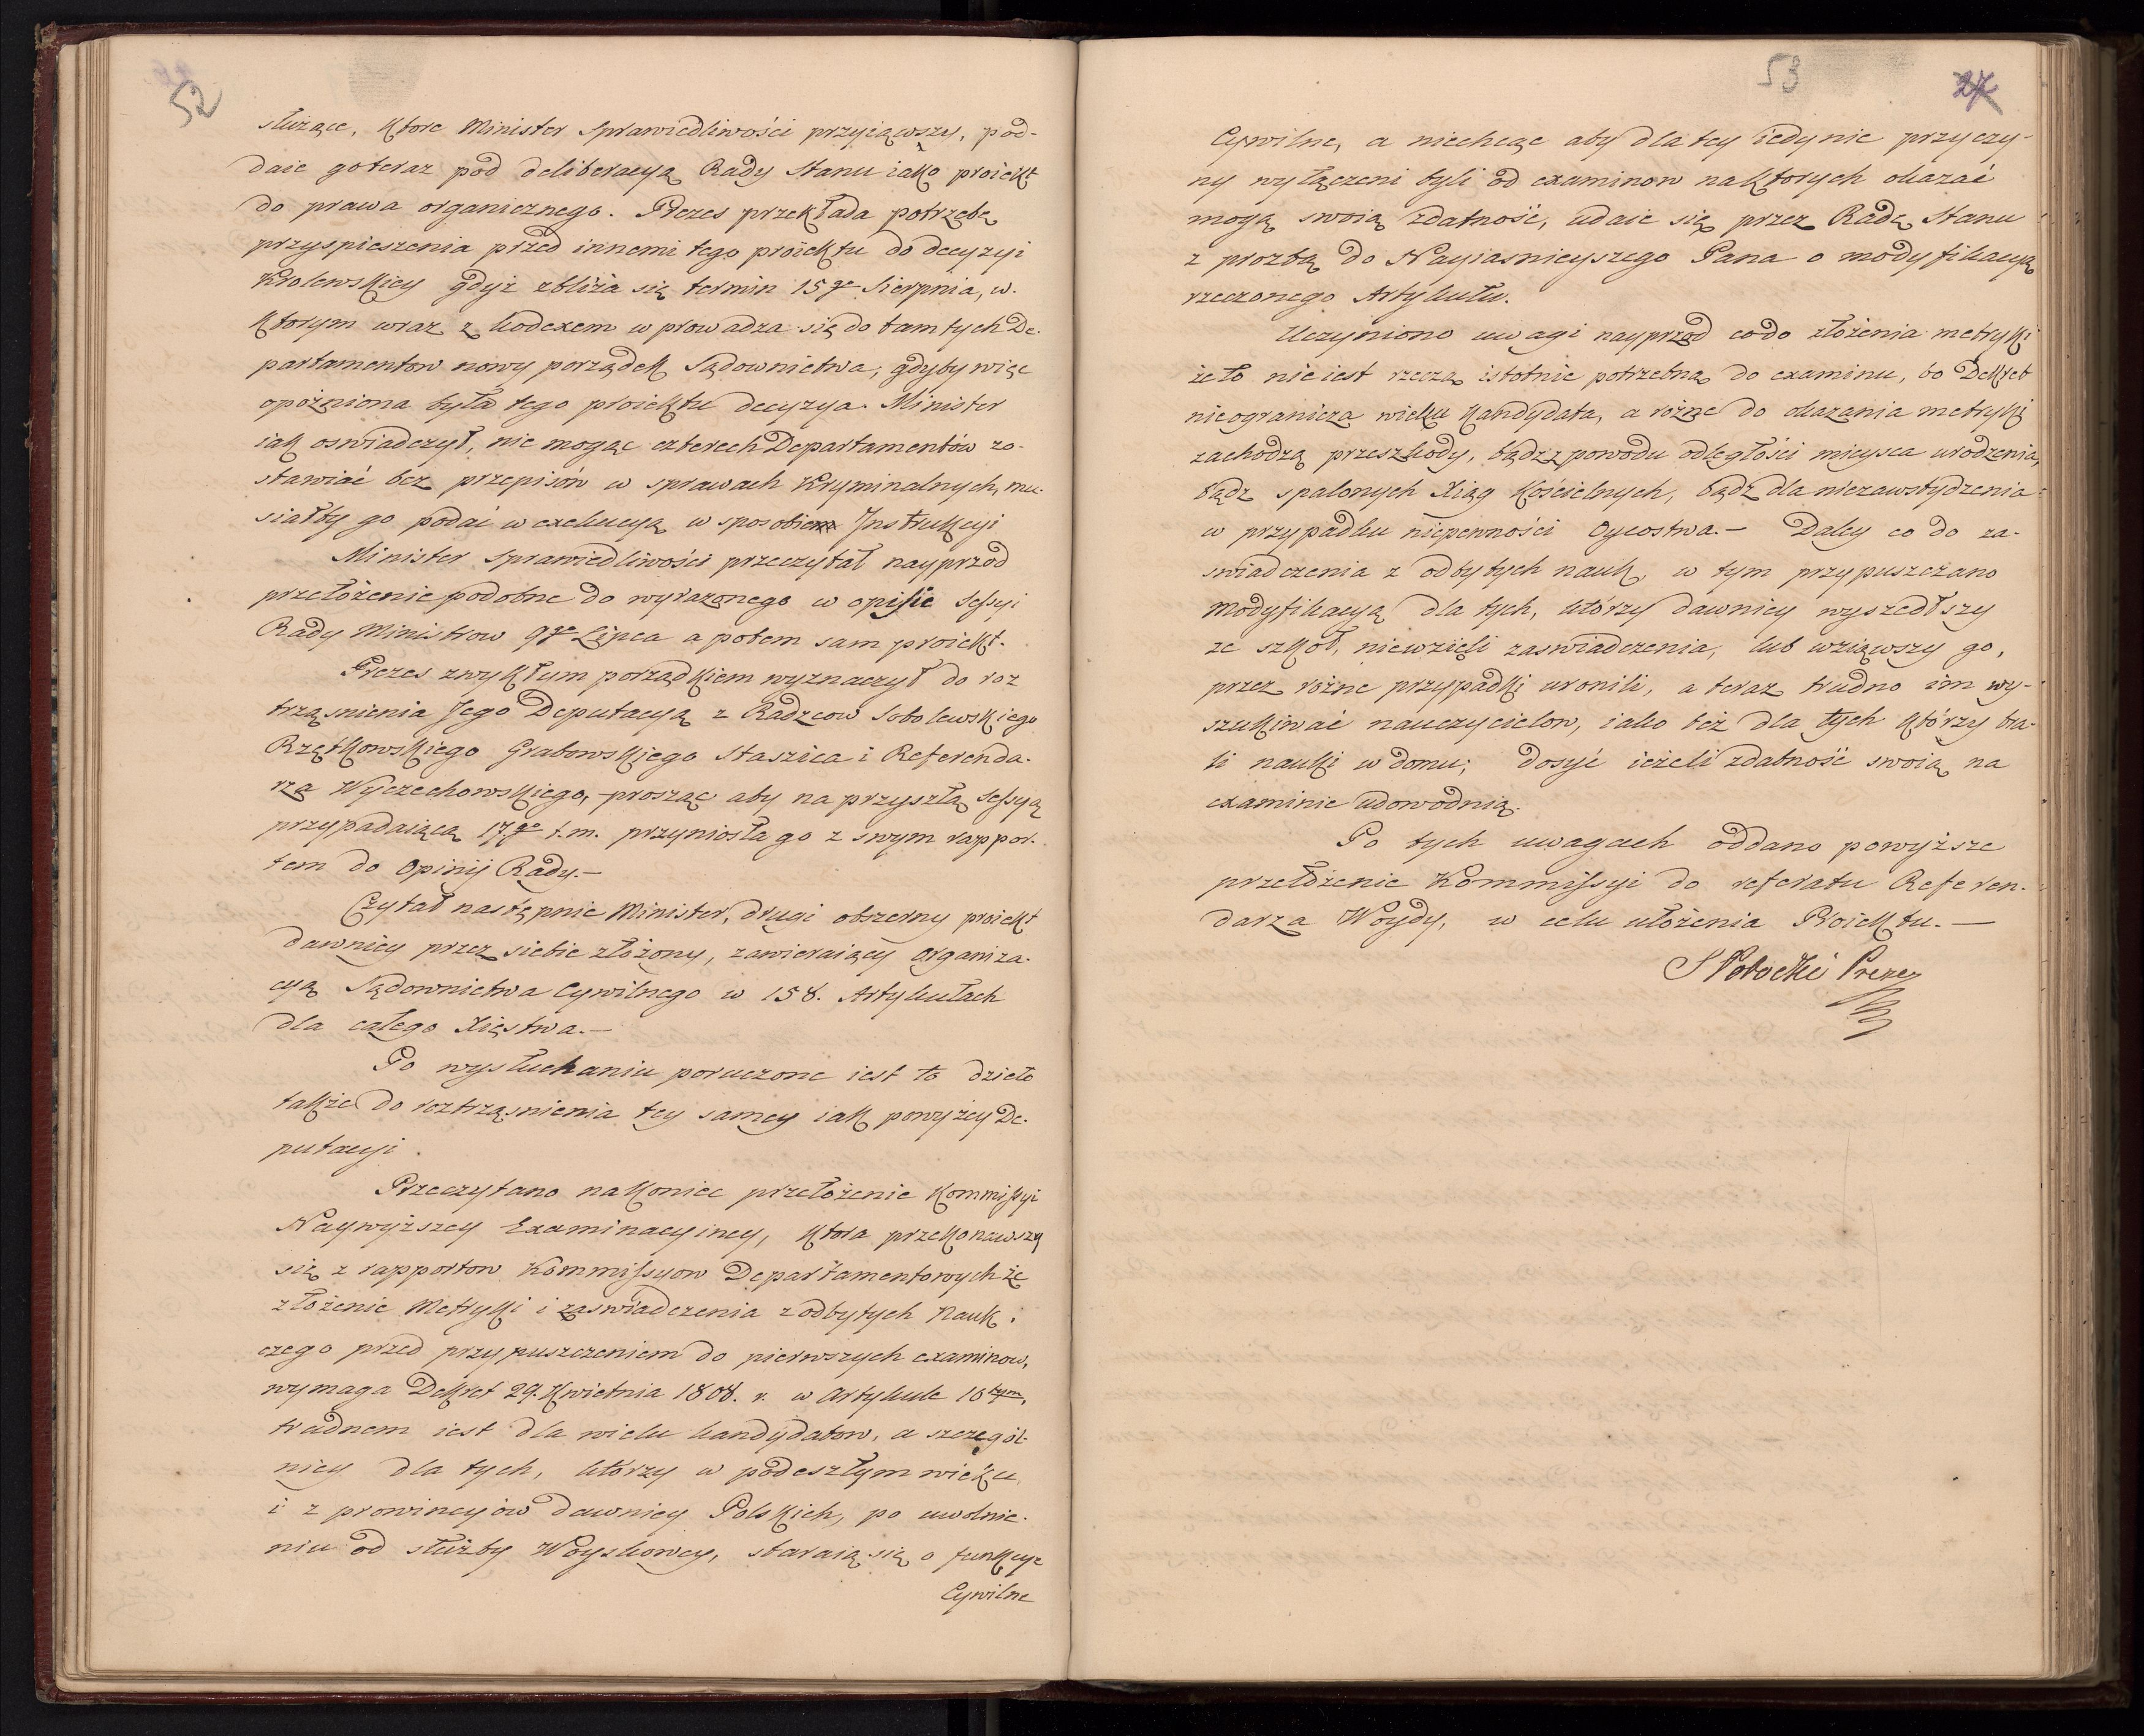 52
służące, ktore Minister Sprawiedliwości przyiąwszy, pod-
daie go teraz pod deliberacyą Rady Stanu iako proiekt
do prawa organicznego. Prezes przekłada potrzebę
przyspieszenia przed innemi tego proiektu do decyzyi
Krolewskiey gdyż zbliża się termin 15go Sierpnia, w.
ktorym wraz z kodexem wprowadza się do tamtych De-
partamentow nowy porządek Sądownictwa; gdyby więc
opozniona była tego proiektu decyzya. Minister
iak oswiadczył, nie mogąc czterech Departamentów zo-
stawiać bez przepisów w sprawach Kryminalnych, mu-
siałby go podać w exekucyą w sposobie Instrukcyi
Minister Sprawiedliwości przeczytał nayprzod
przełożenie podobne do wyrazonego w opisie Sessyi
Rady Ministrow 9go Lipca a potem sam proiekt.
Prezes zwykłym porządkiem wyznaczył do roz
trząsnienia Jego Deputacyą z Radzcow Sobolewskiego
Rzętkowskiego Grabowskiego Staszica i Referenda-
rza Wyczechowskiego, prosząc aby na przyszłą Sessyą
przypadaiącą 17go t.m. przyniosła go z swym rappor-
tem do Opinij Rady.—
Czytał następnie Minister, drugi obszerny proiekt
dawniey przez siebie złożony, zawieraiący Organiza-
cyą Sądownictwa Cywilnego w 158. Artykułach
dla całego Xięstwa.—
Po wysłuchaniu poruczone iest to dzieło
także do roztrząsnienia tey samey iak powyżey De-
putacyi.
Przeczytano nakoniec przełożenie Kommissyi
Naywyższey Examinacyiney, ktora przekonawszy
się z rapportow Kommissyow Departamentowych że
złożenie Metryki i zaswiadczenia z odbytych Nauk,
czego przed przypuszczeniem do pierwszych examinow,
wymaga Dekret 29. Kwietnia 1808. r. w Artykule 16tym,
trudnem iest dla wielu kandydatow, a szczegól-
niey dla tych, którzy w podeszłym wieku
i z prowincyów dawniey Polskich, po uwolnie-
niu od służby Woyskowey, staraią się o funkcye
Cywilne
53
27
Cywilne, a niechcąc aby dla tey iedynie przyczy-
ny wyłączeni byli od examinow na ktorych okazać
mogą swoią zdatność, udaie się przez Radę Stanu
z prozbą do Nayiasnieyszego Pana o modyfikacyą
rzeczonego Artykułu.
Uczyniono uwagi nayprzod codo złożenia metryki
że to nie iest rzeczą istotnie potrzebną do examinu, bo Dekret
nieogranicza wieku Kandydata, a rożne do okazania metryki
zachodzą przeszkody, bądz z powodu odległości mieysca urodzenia,
bądz spalonych Xiąg Kościelnych, bądź dla niezawstydzenia
w przypadku niepewności Oycostwa.— Daley co do za-
swiadczenia z odbytych nauk, w tym przypuszczano
modyfikacyą dla tych, którzy dawniey wyszedłszy
ze szkoł, niewzięli zaswiadczenia, lub wziąwszy go,
przez rożne przypadki uronili, a teraz trudno im wy-
szukiwać nauczycielow, iako też dla tych którzy bra-
li nauki w domu; dosyć ieżeli zdatność swoią na
examinie udowodnią.
Po tych uwagach oddano powyższe
przełożenie Kommissyi do referatu Referen-
darza Woydy, w celu ułożenia Proiektu.—
S Potocki Prezes